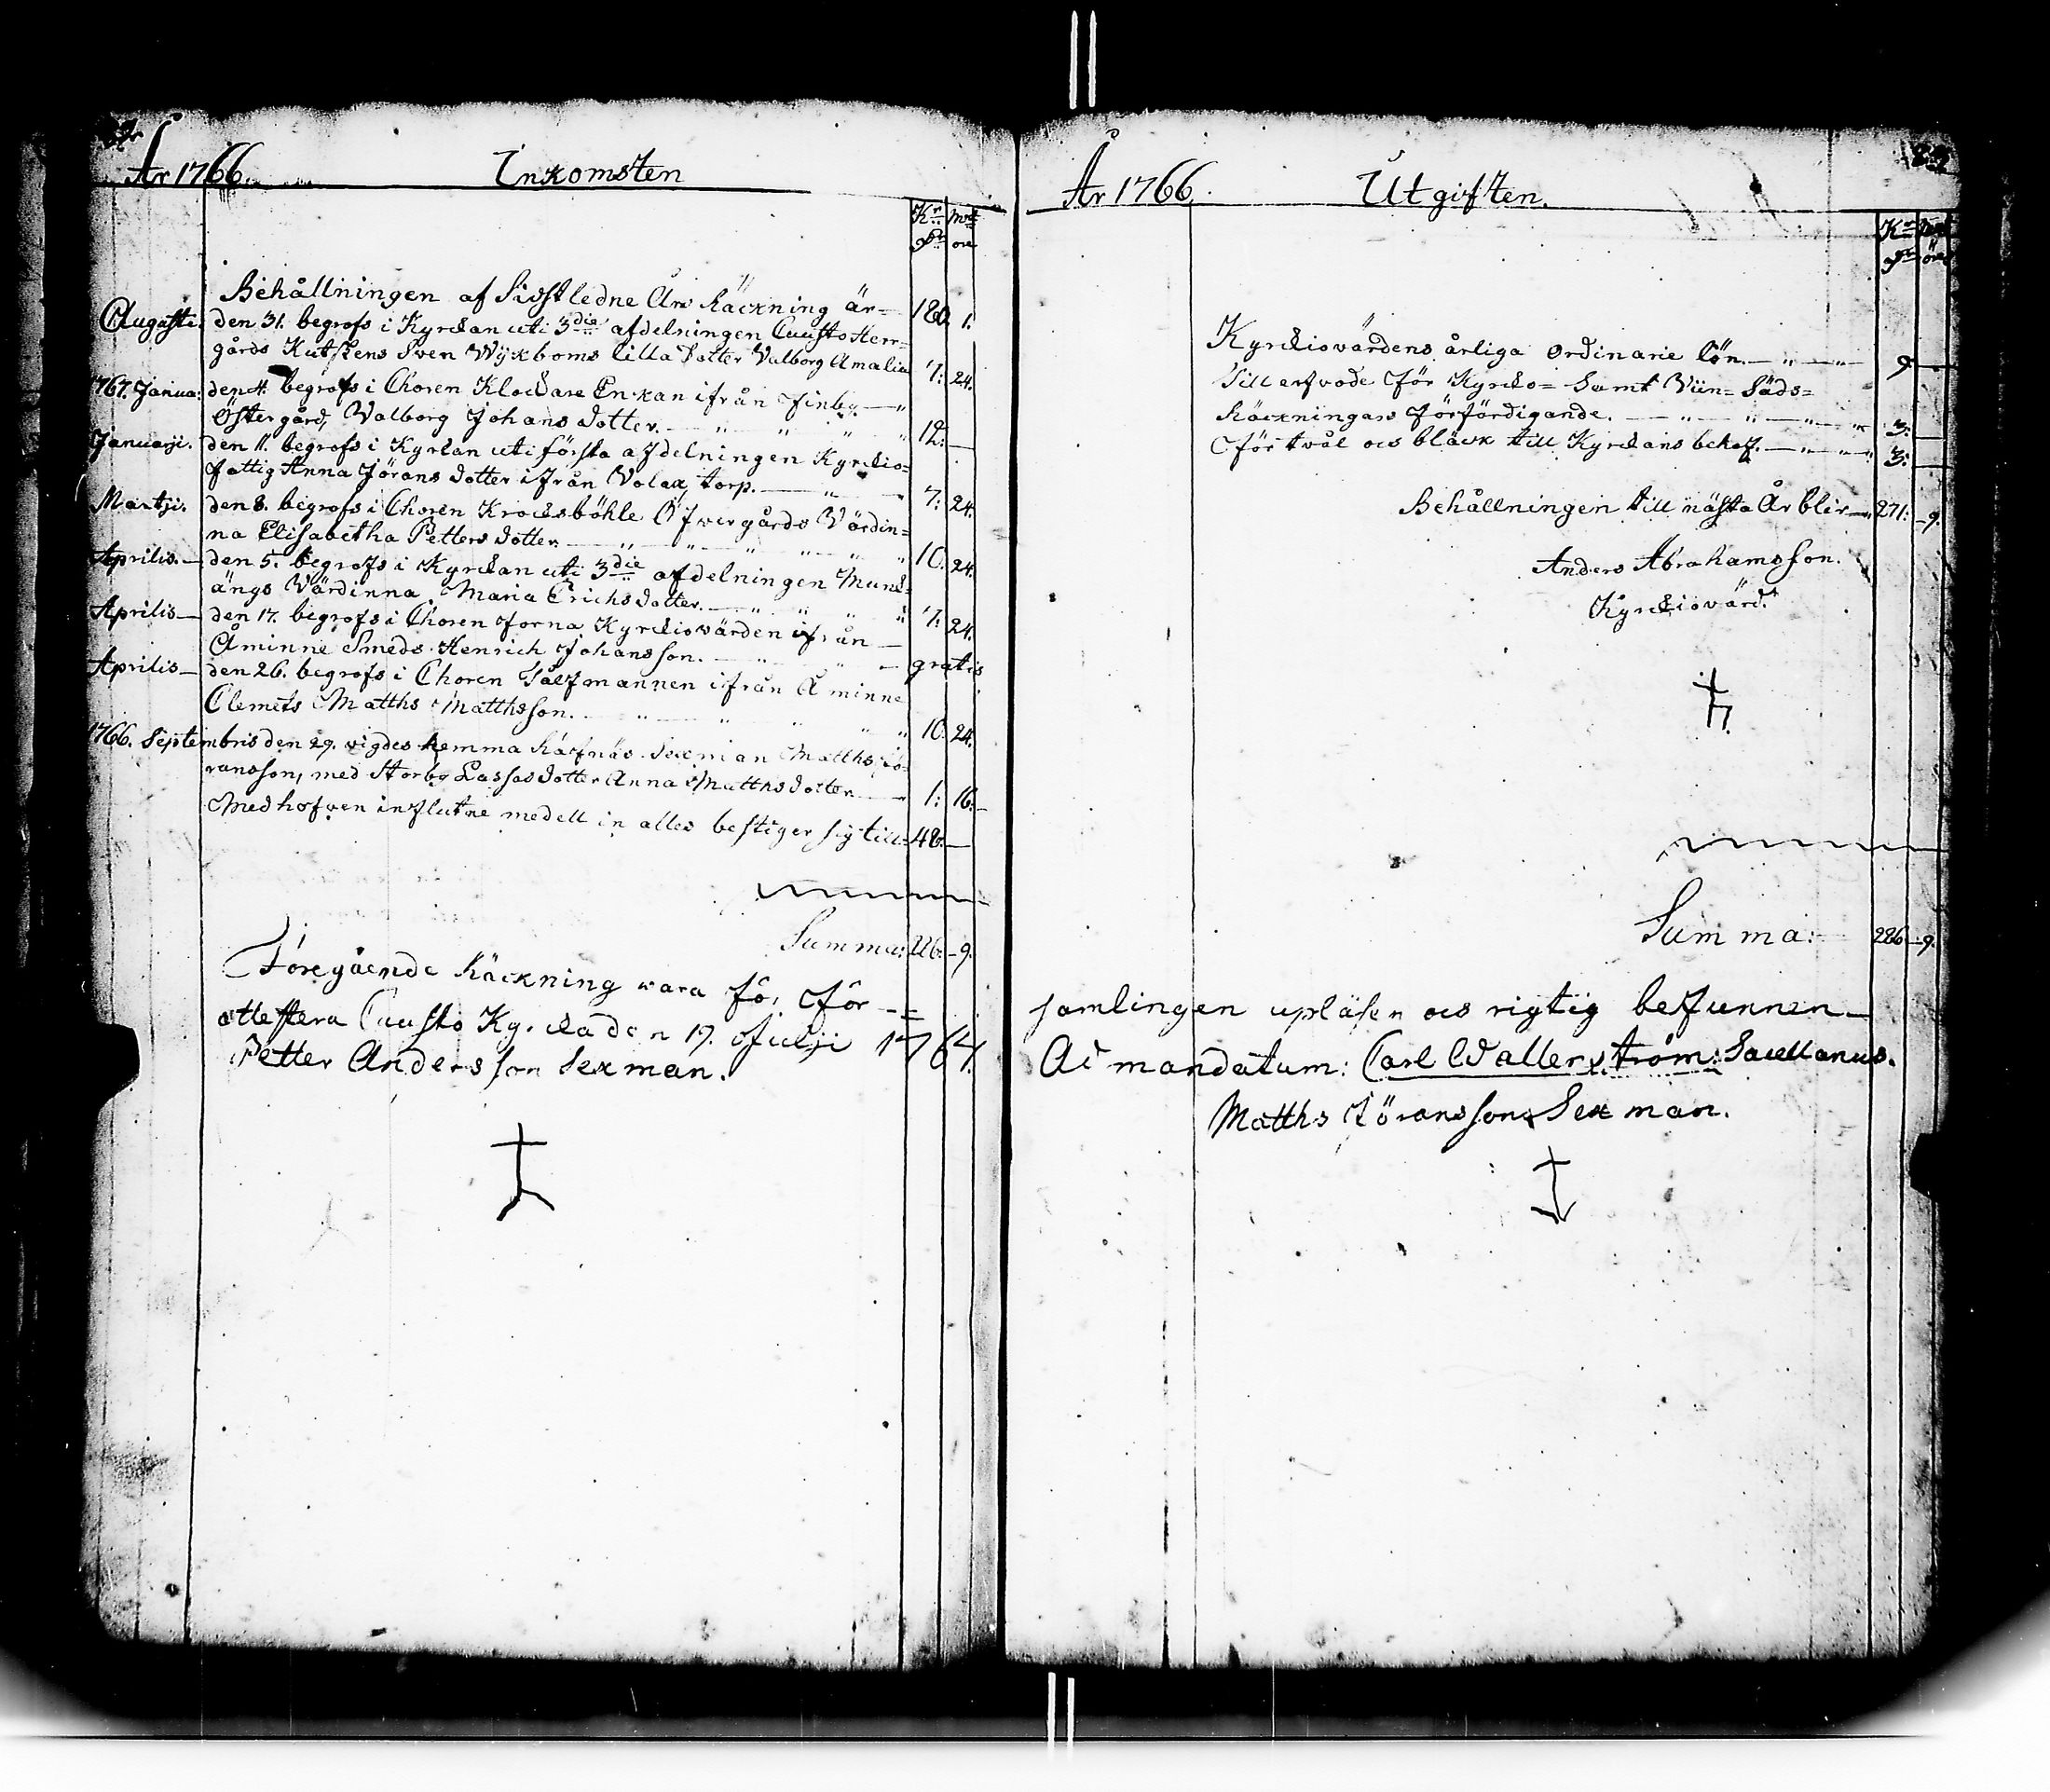 År 1766. Inkomsten
Kr mt
Dr öre
Behållningen af Sidstledne Års Räckning är= 180. 1.
Augusti. den 31. begrofs i Kyrckan uti 3die afdelningen Cuusto Herr=
gårds Kutskens Sven Wÿkboms lilla Dotter Valborg Amalia 7: 24.
1767. Janua: den 4. begrofs i Choren Klockare Enkan ifrån Finby
Östergård, Valborg Johans dotter. 12: —
Januarii. den 11. begrofs i Kyrkan uti första afdelningen Kyrckio=
fattig Anna Jörans dotter ifrån Volax torp. 7: 24.
Martji. den 8. begrofs i Choren Krocksböhle Öfwergårds Värdin=
na Elisabetha Petters dotter. 10. 24.
Aprilis.— den 5. begrofs i Kyrckan uti 3die afdelningen Munk=
ängs Värdinna Maria Erichs dotter. 7: 24.
Aprilis— den 17. begrofs i Choren forna Kyrckiovärden ifrån —
Åminne Smeds Henrich Johansson. — gratis
Aprilis— den 26. begrofs i Choren Tålfmannen ifrån Åminne
Clemets Matths Matthsson. 10. 24.
1766. Septembris den 29. vigdes hemma Räfnäs Sexman Matths Jö=
ransson, med Storby Lassas dotter Anna Matths dotter 1: 16.
Med hofven influtne medell in alles bestiger sig till= 48. —
Summa: 286. 9.
Föregående Räckning wara så, för
attestera Cuusto Kyrcka den 19. Julji 1767.
Petter Andersson Sexman.
År 1766. Utgiften.
Kr mt
Dr öre
Kyrckiovärdens årliga ordinarie lön. 9 —
Till arfvode för Kyrcko= Samt Viin= Säds=
Räckningars förfärdigande. 3: —
För tvål ocs bläck till Kyrckans behof. 3: —
Behållningen till nästa År blir— 271: 9.
Anders Abrahamsson.
Kyrckiovärd.
Summa: 286 9.
samlingen upläsen ocs rigtig befunnen—
Ad mandatum: Carl Wallerström: Sacellanus.
Matths Jöransson Sexman.